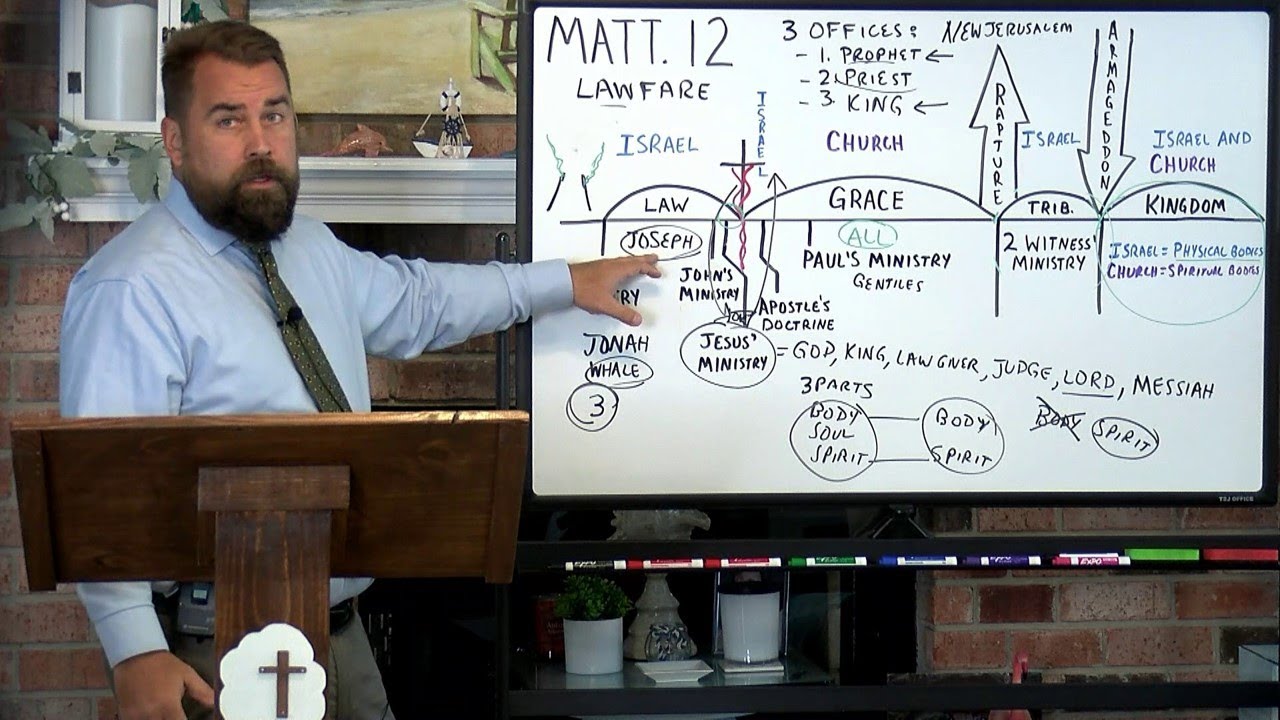 MATT. 12
LAWFARE
3 OFFICES:
- 1. PROPHET ←
- 2. PRIEST
- 3. KING ←
NEW JERUSALEM
ISRAEL
ISRAEL
CHURCH
RAPTURE
ISRAEL
ARMAGEDDON
ISRAEL AND
CHURCH
LAW
GRACE
TRIB.
KINGDOM
JOSEPH
JOHN'S
MINISTRY
APOSTLE'S
DOCTRINE
ALL
PAUL'S MINISTRY
GENTILES
2 WITNESS'
MINISTRY
ISRAEL = PHYSICAL BODIES
CHURCH = SPIRITUAL BODIES
RY
JONAH
WHALE
3
JESUS'
MINISTRY
= GOD, KING, LAWGIVER, JUDGE, LORD, MESSIAH
3 PARTS
BODY
SOUL
SPIRIT
BODY
SPIRIT
BODY
SPIRIT
T2J OFFICE
EXPO